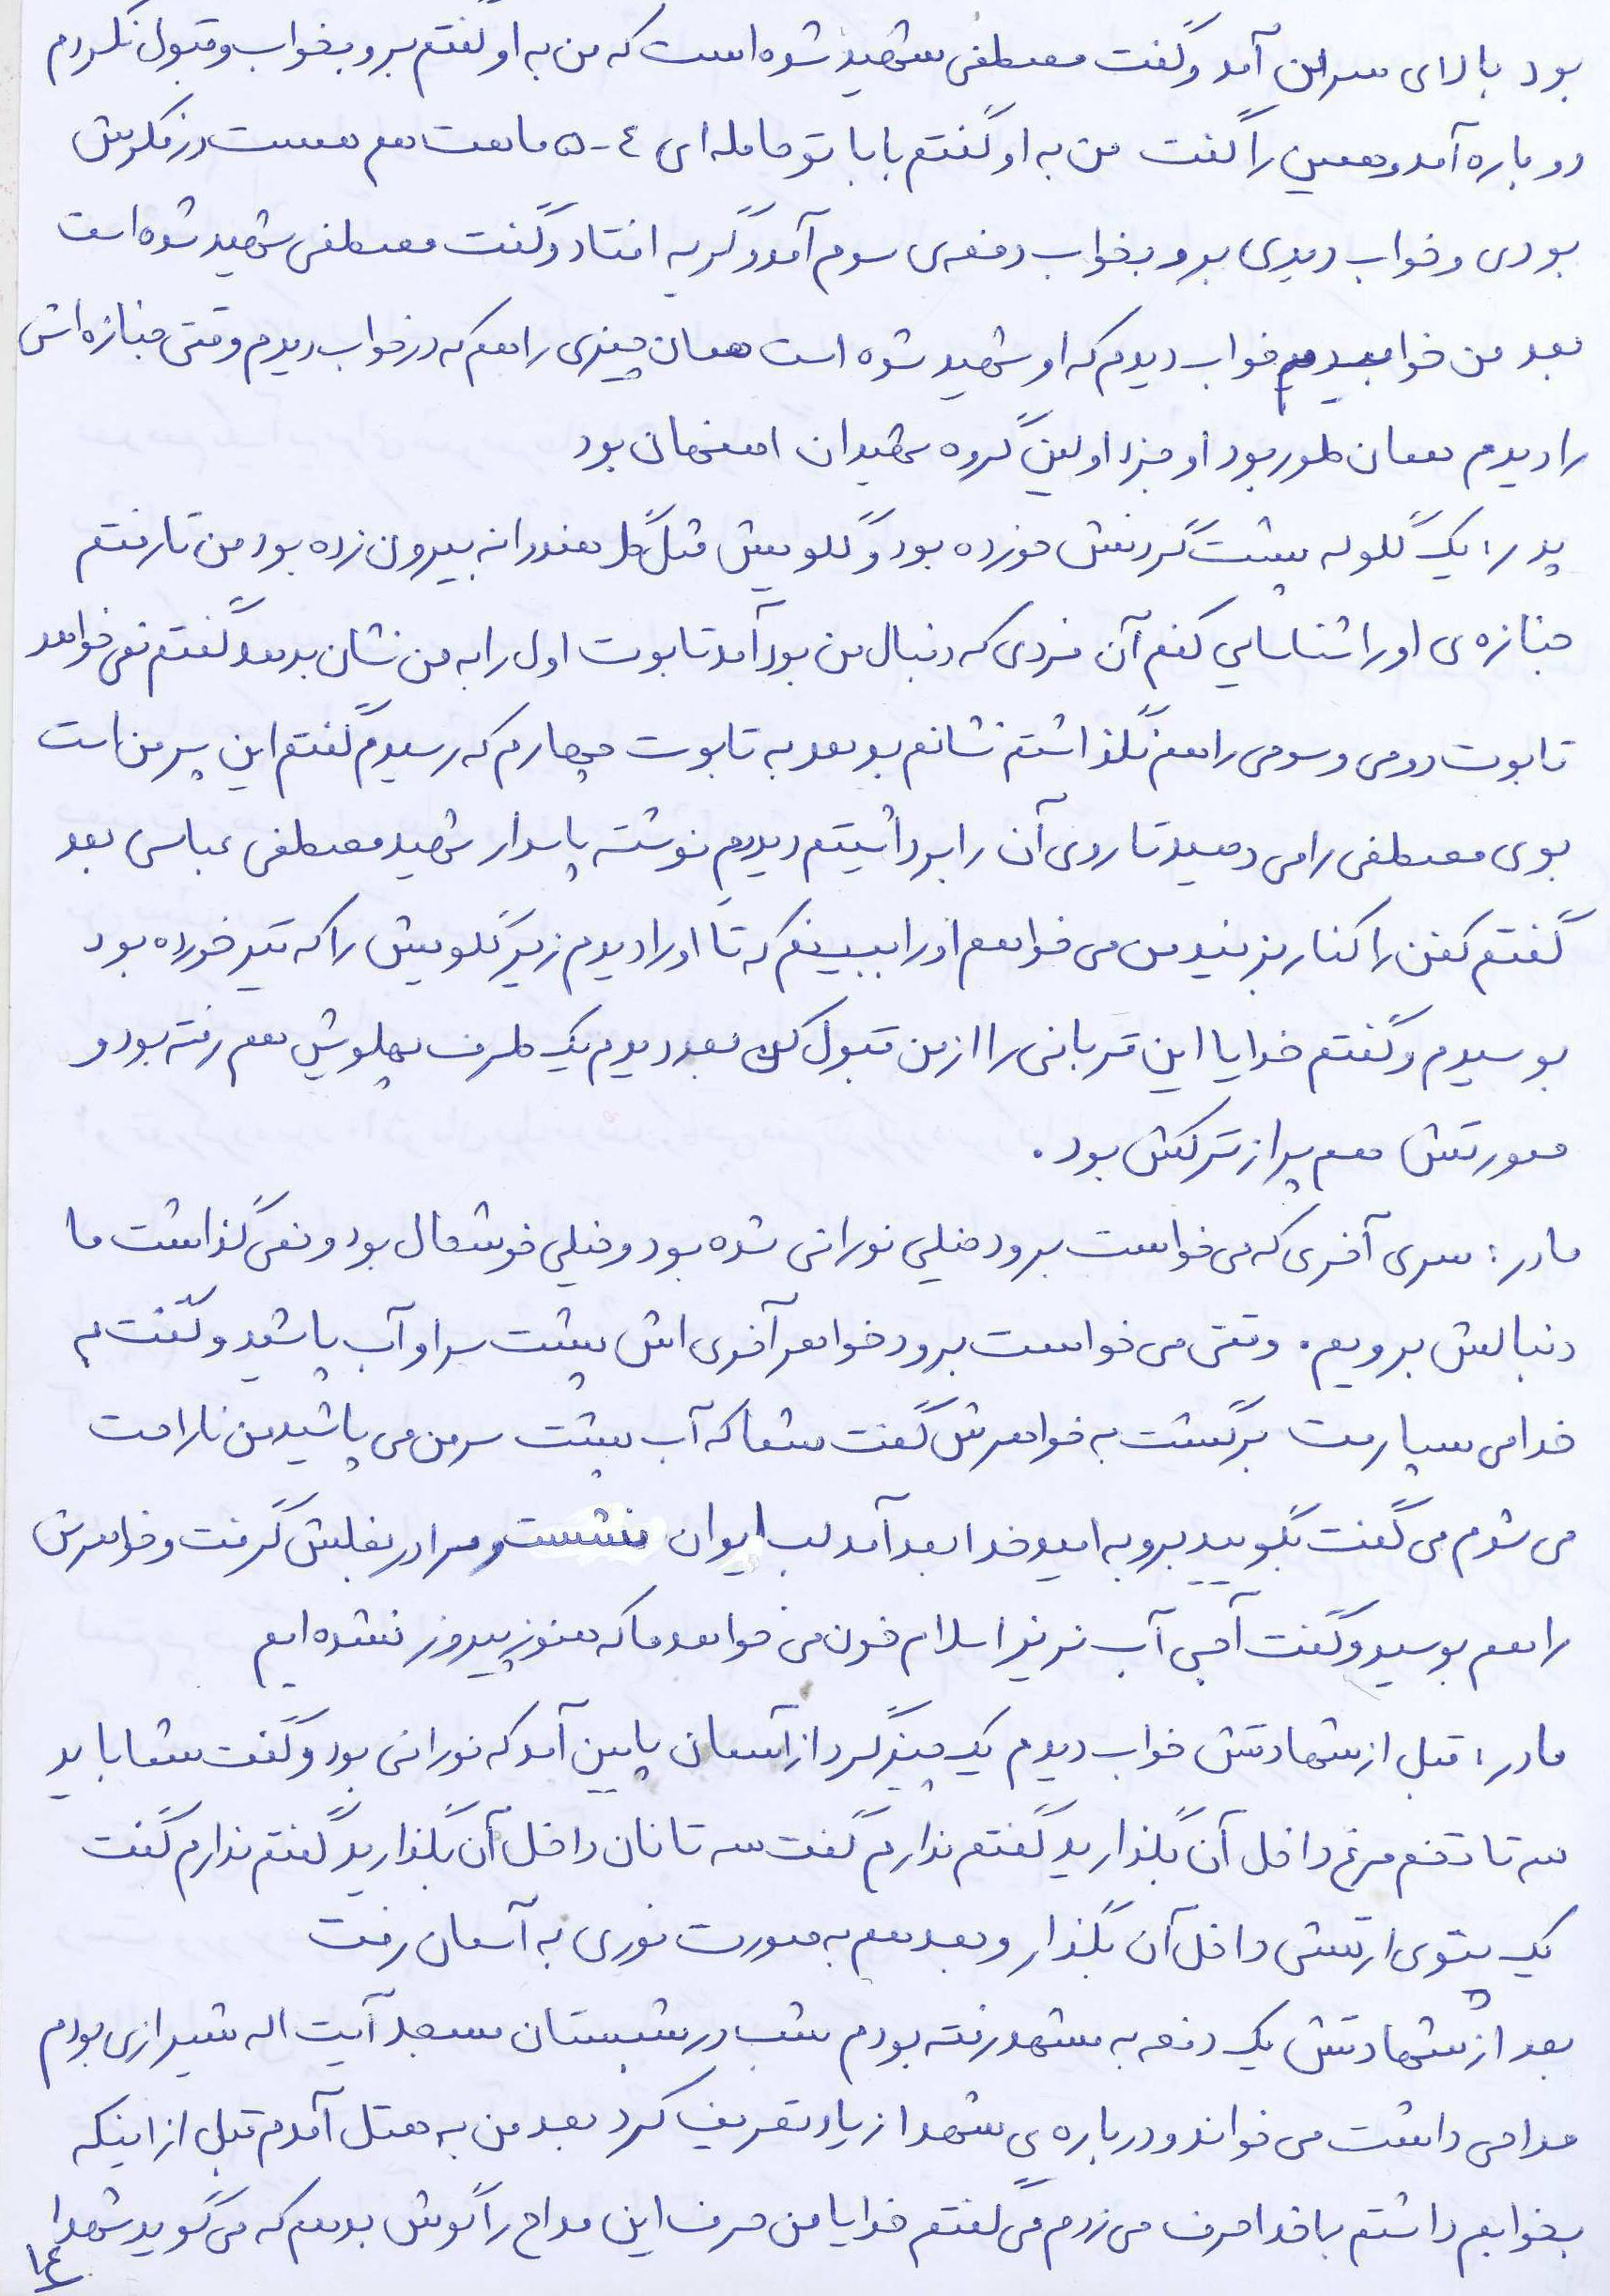 بود بالای سرمن آمد و گفت مصطفی شهید شده است که من به او گفتم برو بخواب و قبول نکردم
دوباره آمد و همین را گفت من به او گفتم بابا تو حامله ای ۴-۵ ماهت هم هست در فکرش
بودی و خواب دیدی برو بخواب دفعه ی سوم آمد و گریه افتاد و گفت مصطفی شهید شده است
بعد من خوابیدم خواب دیدم که او شهید شده است همان چیزی را هم که در خواب دیدم وقتی جنازه اش
را دیدم همان طور بود او جزء اولین گروه شهیدان اصفهان بود
پدر: یک گلوله پشت گردنش خورده بود و گلویش مثل گل هندوانه بیرون زده بود من تا رفتم
جنازه ی او را شناسایی کنم آن فردی که دنبال من بود آمد تابوت اول را به من نشان بدهد گفتم نمی خواهد
تابوت دومی و سومی را هم نگذاشتم نشانم بدهد به تابوت چهارم که رسیدم گفتم این پسر من است
بوی مصطفی را می دهد تا روی آن را برداشتیم دیدم نوشته پاسدار شهید مصطفی عباسی بعد
گفتم کفن را کنار بزنید من می خواهم او را ببینم که تا او را دیدم زیر گلویش را که تیر خورده بود
بوسیدم و گفتم خدایا این قربانی را از من قبول کن بعد دیدم یک طرف پهلویش هم رفته بود و
صورتش هم پر از ترکش بود.
مادر: سری آخری که می خواست برود خیلی نورانی شده بود و خیلی خوشحال بود و نمی گذاشت ما
دنبالش برویم. وقتی می خواست برود خواهر آخری اش پشت سر او آب پاشید و گفت به
خدا می سپارمت برگشت به خواهرش گفت شما که آب پشت سر من می پاشید من ناراحت
می شوم می گفت بگویید برو به امید خدا بعد آمد لب ایوان نشست و مرا در بغلش گرفت و خواهرش
را هم بوسید و گفت آجی آب نریز اسلام خون می خواهد ما که هنوز پیروز نشده ایم
مادر: قبل از شهادتش خواب دیدم یک چیز گرد از آسمان پایین آمد که نورانی بود و گفت شما باید
سه تا تخم مرغ داخل آن بگذارید گفتم ندارم گفت سه تا نان داخل آن بگذارید گفتم ندارم گفت
یک پتوی ارتشی داخل آن بگذار و بعد هم به صورت نوری به آسمان رفت
بعد از شهادتش یک دفعه به مشهد رفته بودم شب در شبستان مسجد آیت اله شیرازی بودم
مداحی داشت می خواند و درباره ی شهدا زیاد تعریف کرد بعد من به هتل آمدم قبل از اینکه
بخوابم داشتم با خدا حرف می زدم می گفتم خدایا من حرف این مداح را گوش بدهم که می گوید شهدا
۱۴